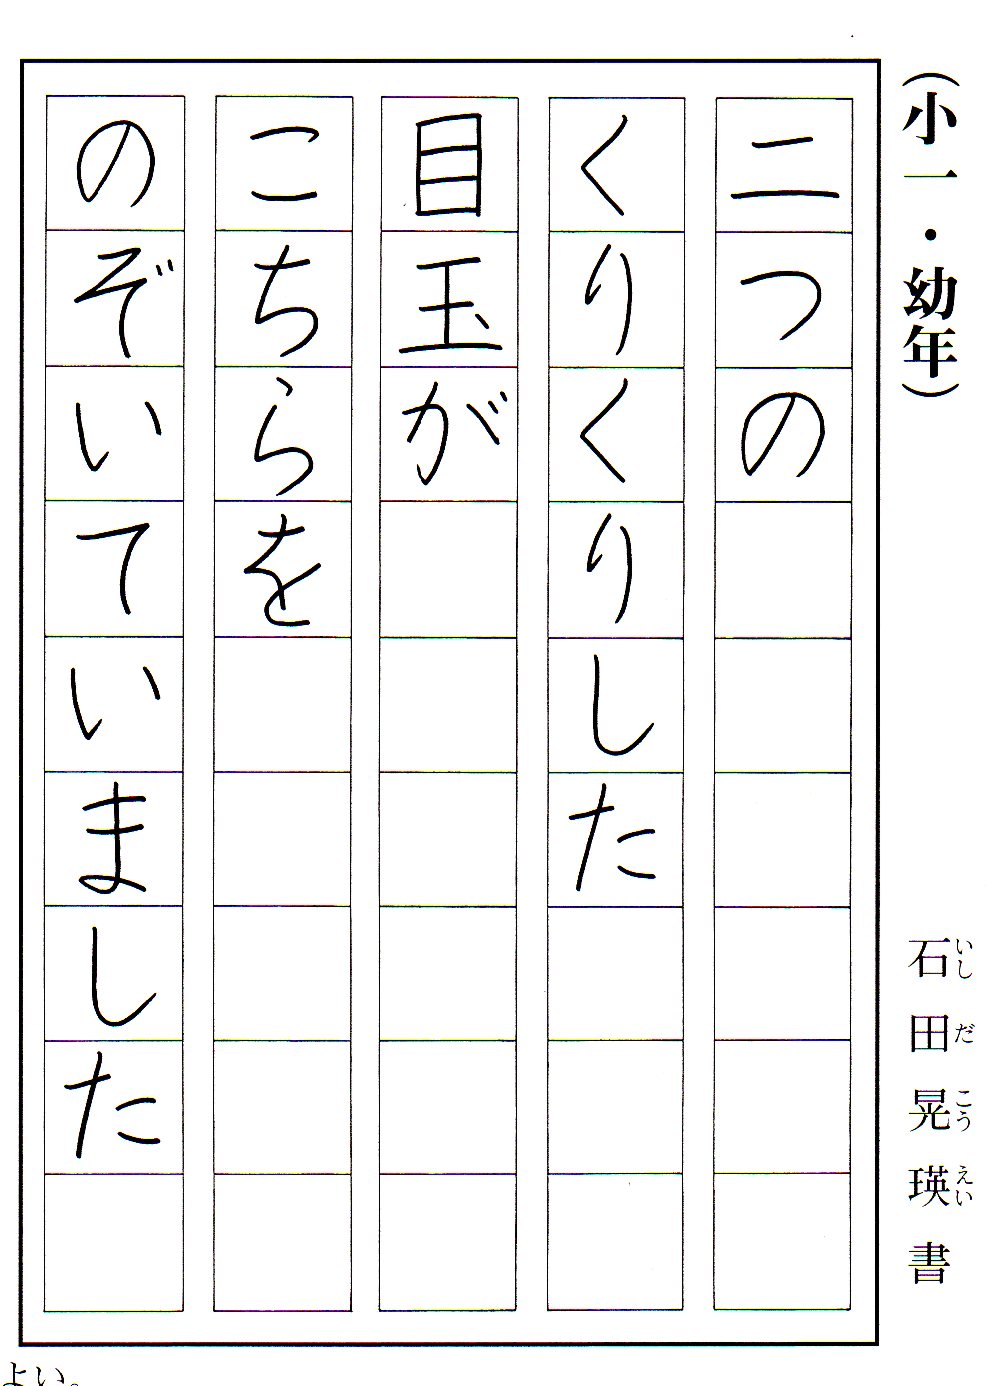 （小一・幼年）
石田晃瑛書
いしだこうえい
二つの
くりくりした
目玉が
こちらを
のぞいていました
よい。